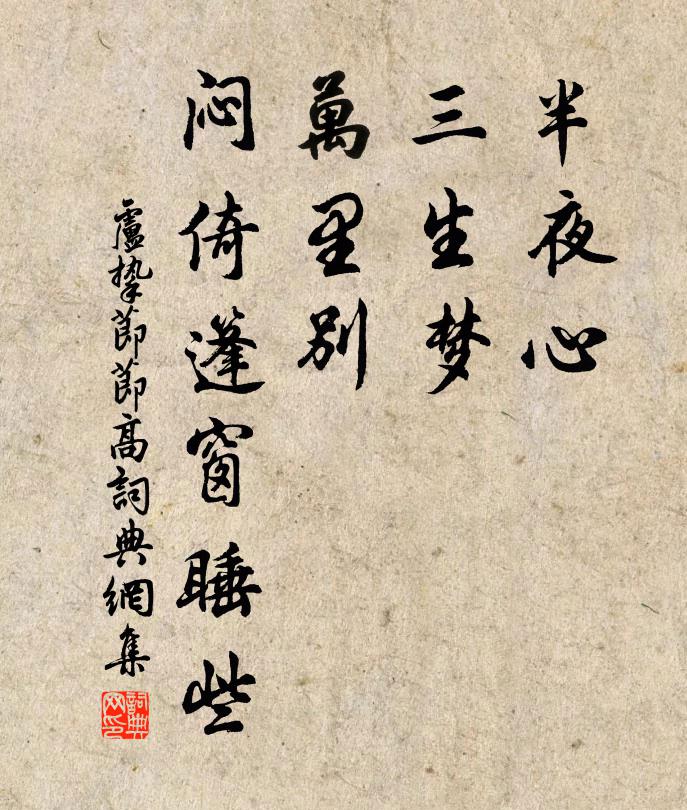 半夜心
三生梦
萬里别
闷倚篷窗睡些
盧挚節節高詞典網集
詞典网印